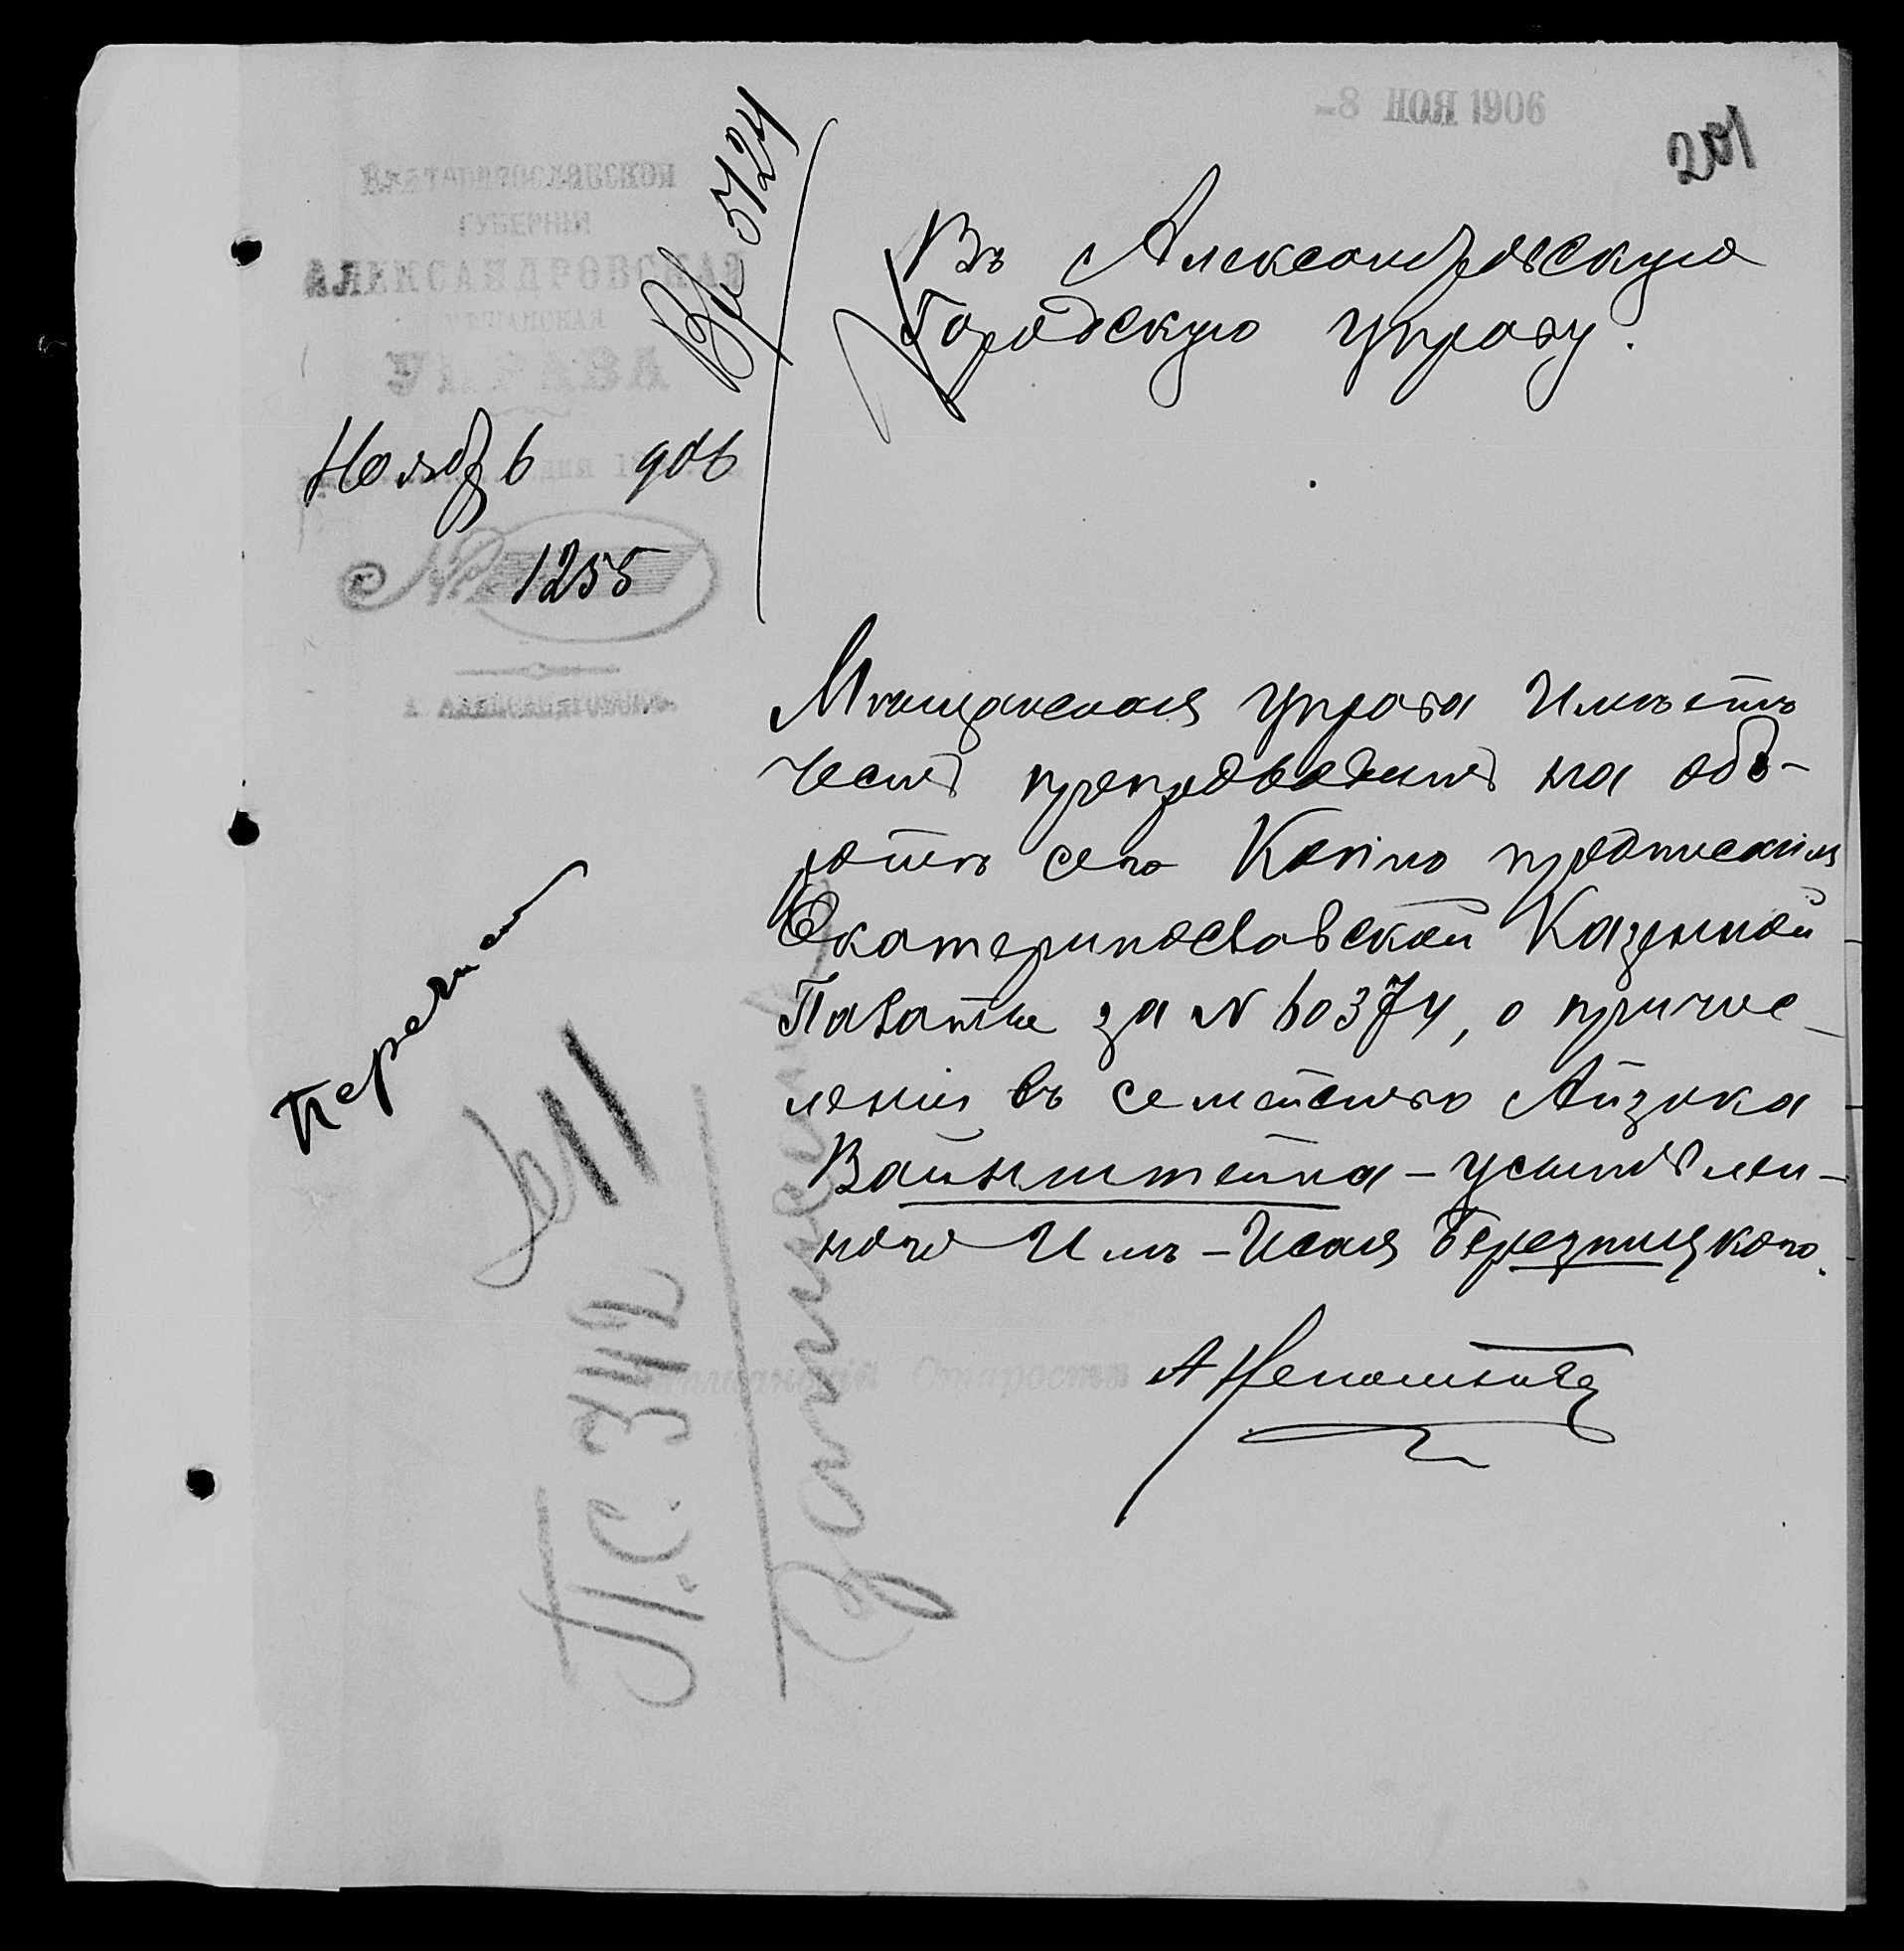 -8 НОЯ 1906
201
Екатеринославской
ГУБЕРНІИ
АЛЕКСАНДРОВСКАЯ
МѢЩАНСКАЯ
УПРАВА
Вх 5124
Нояб 6 906
№ 1255
Г. АЛЕКСАНДРОВСКЪ
Въ Александровскую
Городскую Управу.
Мѣщанская Управа Имѣетъ
честь препроводить на обо-
ротѣ сего Копію предписанія
Екатеринославской Казенной
Палаты за № 60374, о причис-
леніи въ семейство Айзика
Вайнштейна - усыновлен-
наго Имъ - Исая Березницкого.
Мѣщанскій Староста
П.С. 342
Записано